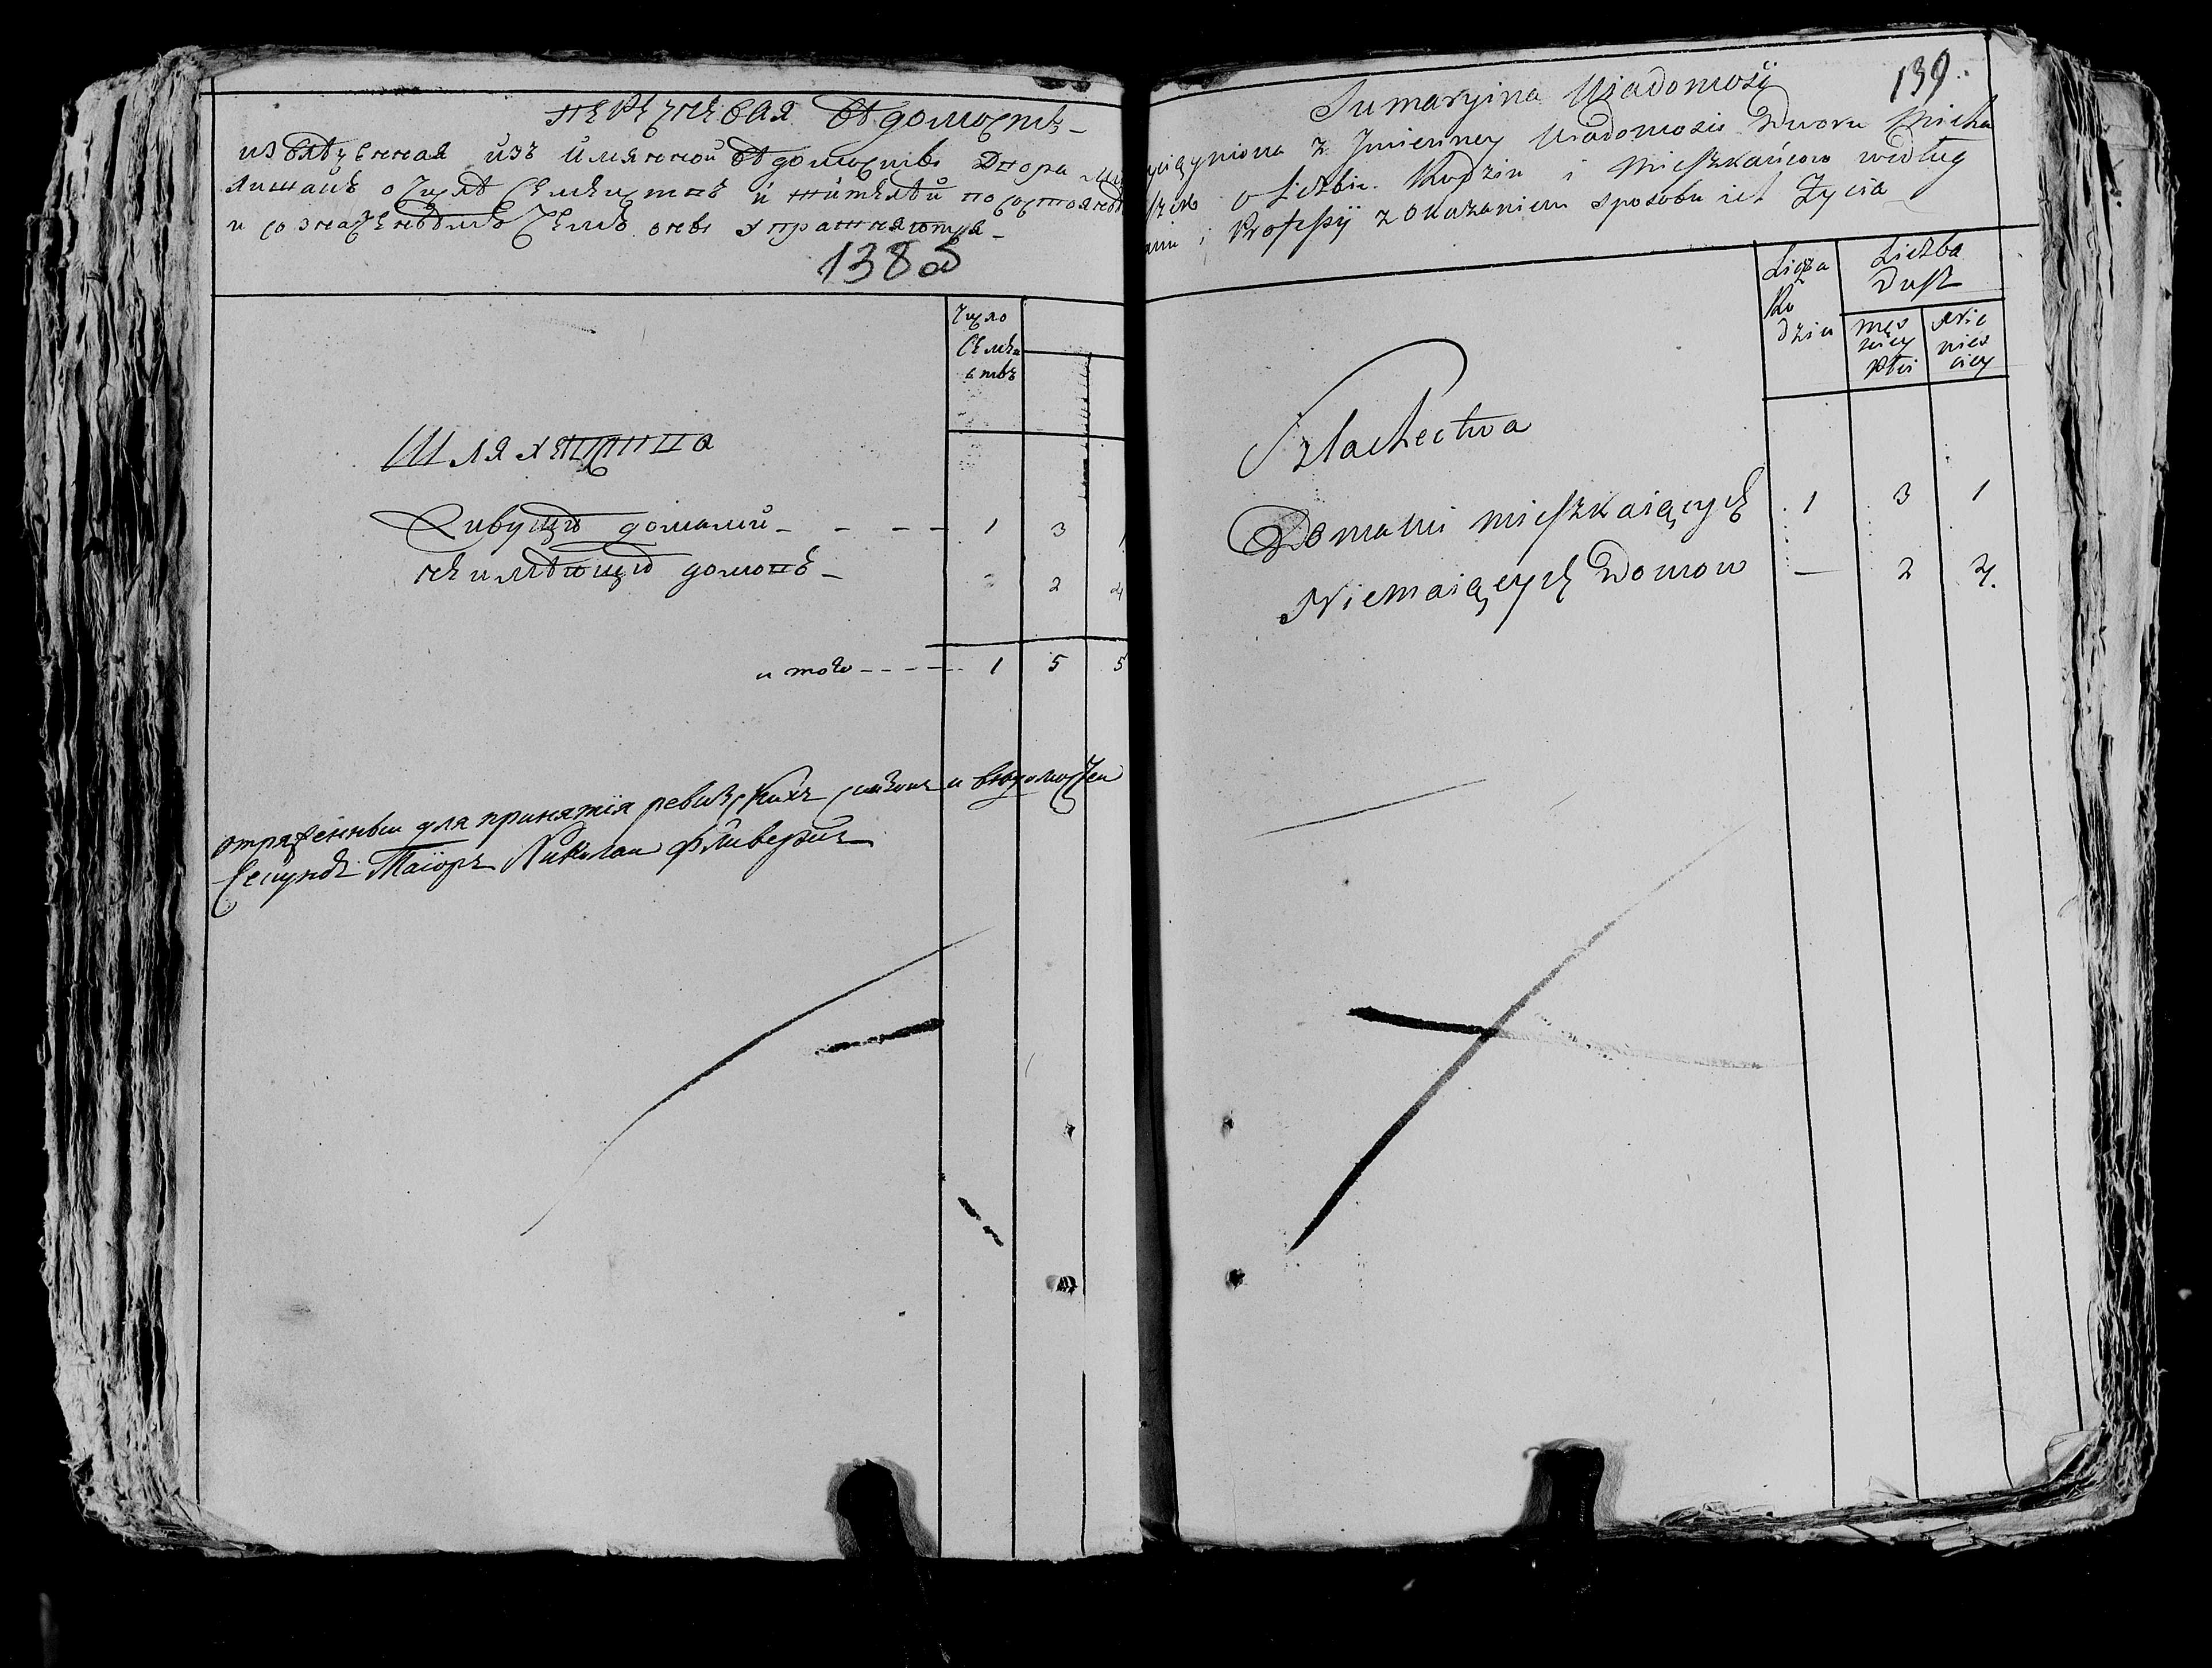 перечневая вѣдомость
извлеченная изъ имянной вѣдомости двора
о числѣ семействъ и жителѣй по состоянію
и со значенѣемъ чемъ оне упражняются
138 об
Число
Семей
ствъ
Шляхетства
Живущѣ домами - - - - 1 3 1
не имѣющѣ домовъ - 2 4
и того - - - - - 1 5 5
отряженныи для принятія ревизскихъ сказокъ и вѣдомостеи
Секундъ Маіоръ Николаи
139.
Sumaryina Wiadomość
z Imienney Wiadomości Dworu Micha
o Liczbie Rodzin i Mieszkańcow według
i Professyi z okazaniem sposobu ich Życia
Liczba
Ro
dzin
Liczba
Dusz
męs
kiey
płci
Nie
wies
ciey
Szlachectwa
Domami mieszkaiących 1 3 1
Niemaiących Domow — 2 4.